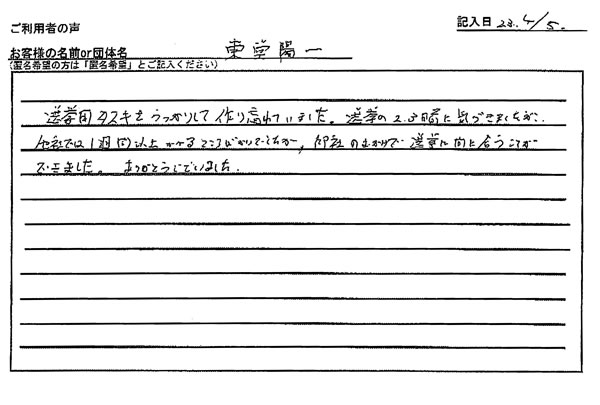 ご利用者の声
記入日 23.4/5.
お客様の名前or団体名 東堂陽一
(匿名希望の方は「匿名希望」とご記入ください)
選挙用タスキをうっかりして作り忘れていました。選挙の2日前に気づきましたが、
他社では1週間以上かかるところばかりでしたが、御社のおかげで選挙に間に合うことが
できました。ありがとうございました。